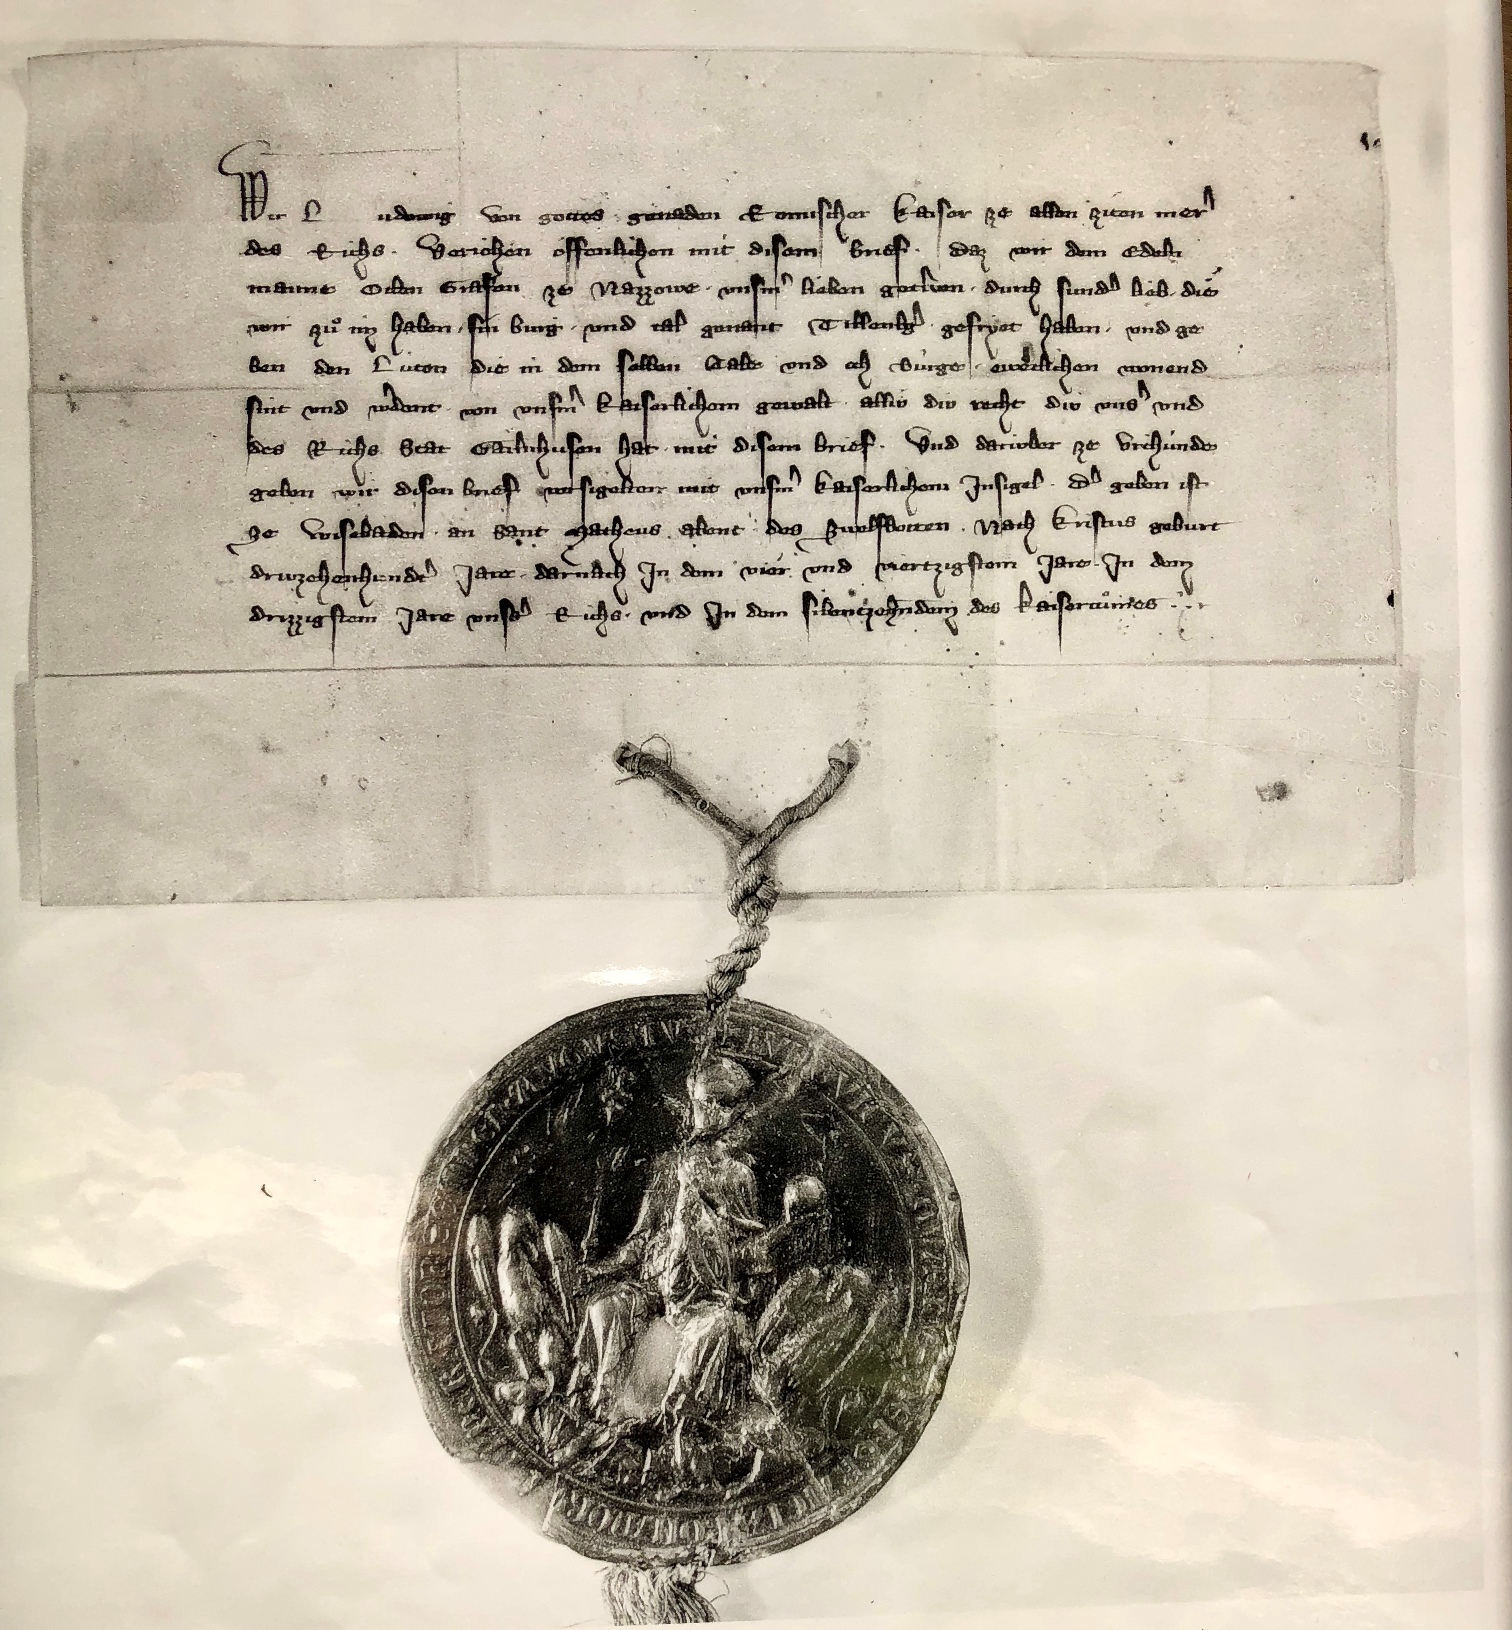 Wir Ludowig von gottes genaden Romischer keiser ze allen ziten merer
des Richs. Veriehen offenlichen mit disem brief. daz wir dem Edeln
manne Otten Grafen ze Nazzowe. unserm lieben getriwen. durch sunder lieb. die
wir zů im haben. sin burg. und tal genant Tillenberg. gefryet haben. und ge
ben den Lůten die in dem selben Tale und uf Burge. ewerlichen wonend
sint und werdent. von unserm keiserlichem gewalt. alliv div recht div unser und
des Richs Stat Gailnhusen hat. mit disem brief. Und daruber ze Urchunde
geben wir disen brief versigelten mit unserm keiserlichem Insigel. der geben ist
ze Wisebaden. an sant Matheus abent des Zwelfbotten. Nach Kristus geburt
driuzehenhundert Jare. darnach In dem vier und viertzigstem Jare. In dem
drizzigstem Jare unsers Richs. und In dem sibentzehendem des keisertůmes.